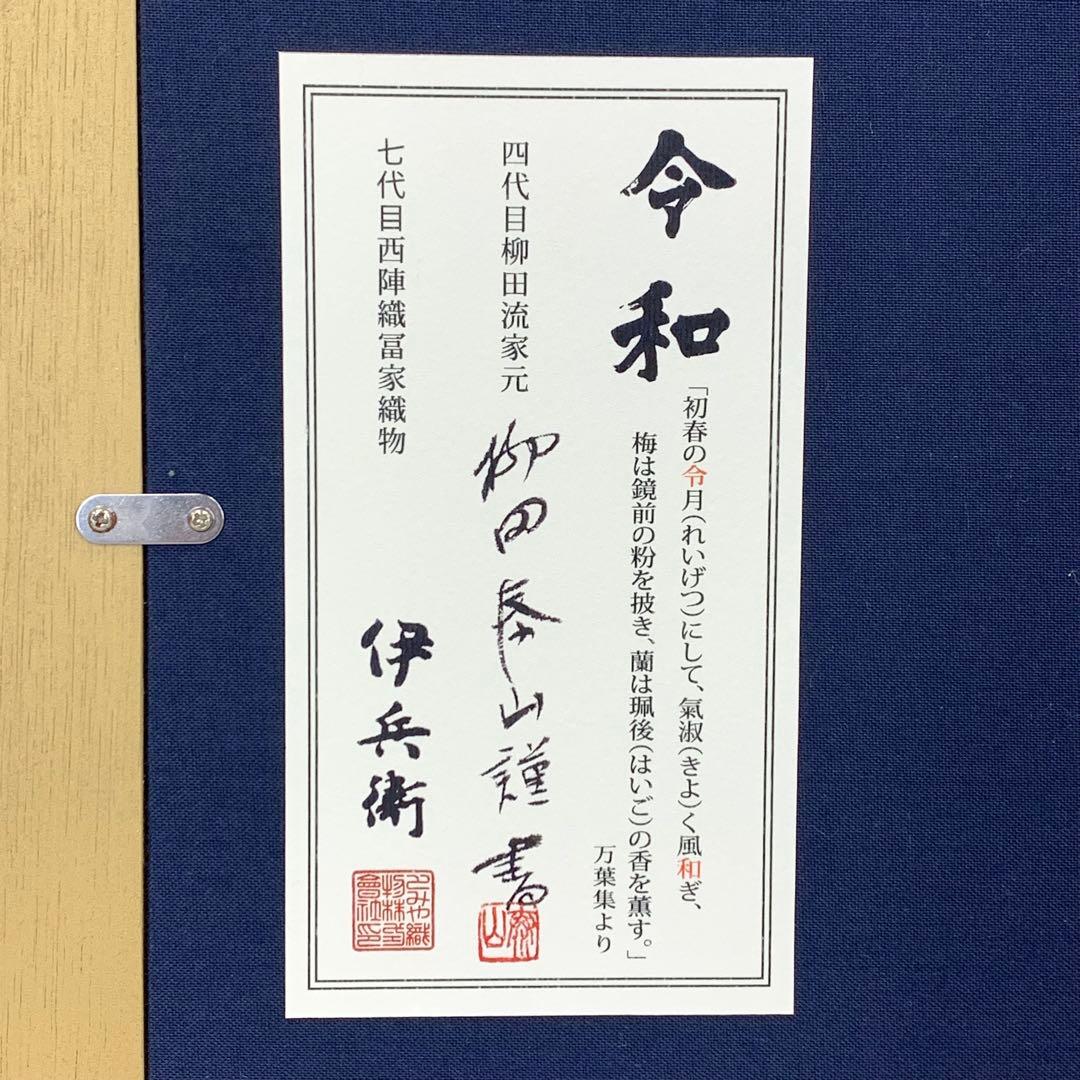 令和
「初春の令月(れいげつ)にして、氣淑(きよ)く風和ぎ、
梅は鏡前の粉を披き、蘭は珮後(はいご)の香を薫す。」
万葉集より
四代目柳田流家元
柳田泰山謹書
七代目西陣織冨家織物
伊兵衛
泰山
とみや織物株式會社印